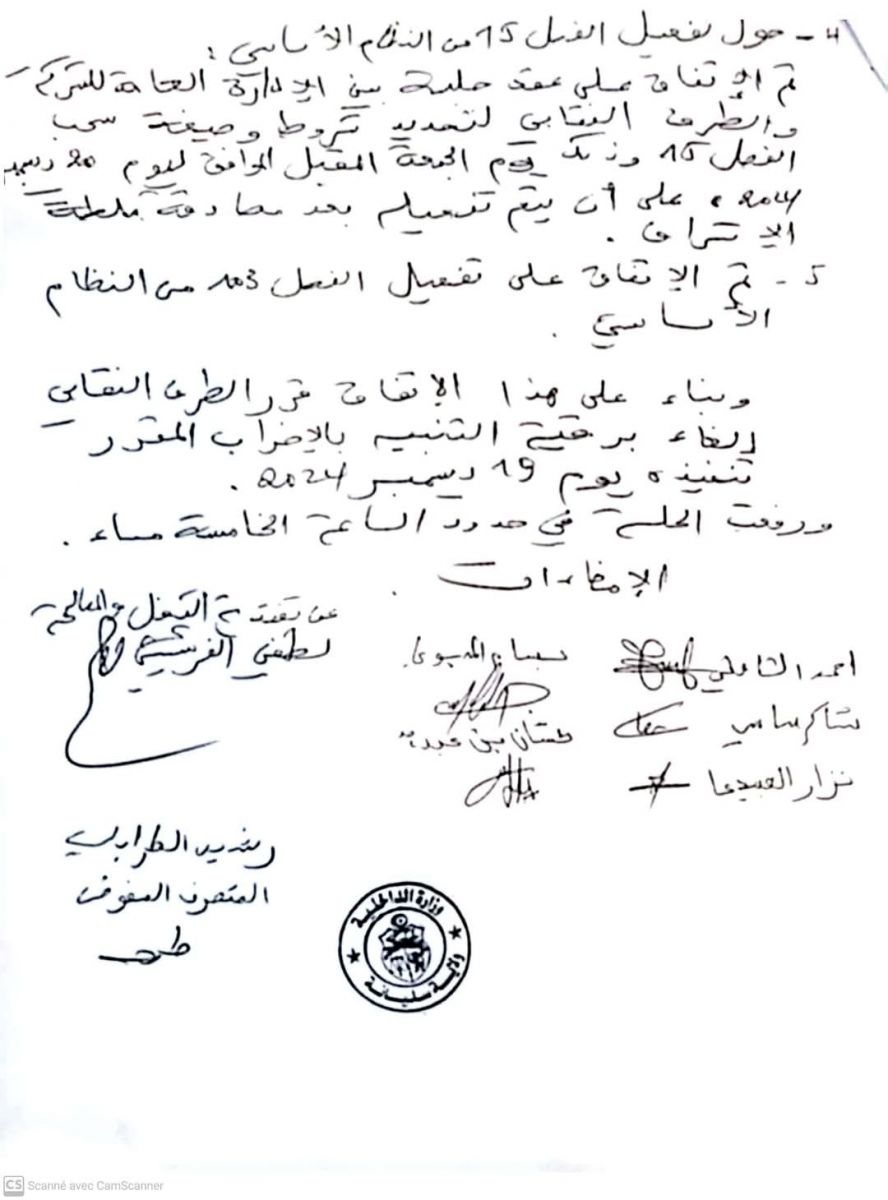 4 - حول تفعيل الفصل 15 من النظام الأساسي :
تم الإتفاق على عقد جلسة بين الإدارة العامة للشركة
والطرف النقابي لتحديد شروط وصيغة سحب
الفصل 15 وذلك يوم الجمعة المقبل الموافق ليوم 20 ديسمبر
2024 على أن يتم تفعيله بعد مصادقة سلطة
الإشراف .
5 - تم الإتفاق على تفعيل الفصل 103 من النظام
الأساسي .
وبناء على هذا الإتفاق قرر الطرف النقابي
إلغاء برقية التنبيه بالإضراب المقرر
تنفيذه يوم 19 ديسمبر 2024 .
ورفعت الجلسة في حدود الساعة الخامسة مساء .
الإمضاءات .
عن تفقدية الشغل والمصالحة
لطفي الفرشيشي
احمد الشاذلي
شاكر ساسي
بن عبد الله
نزار العبيدي
رشيد الطرابلسي
المتصرف المفوض
وزارة الداخلية
ولاية سليانة
CS Scanné avec CamScanner